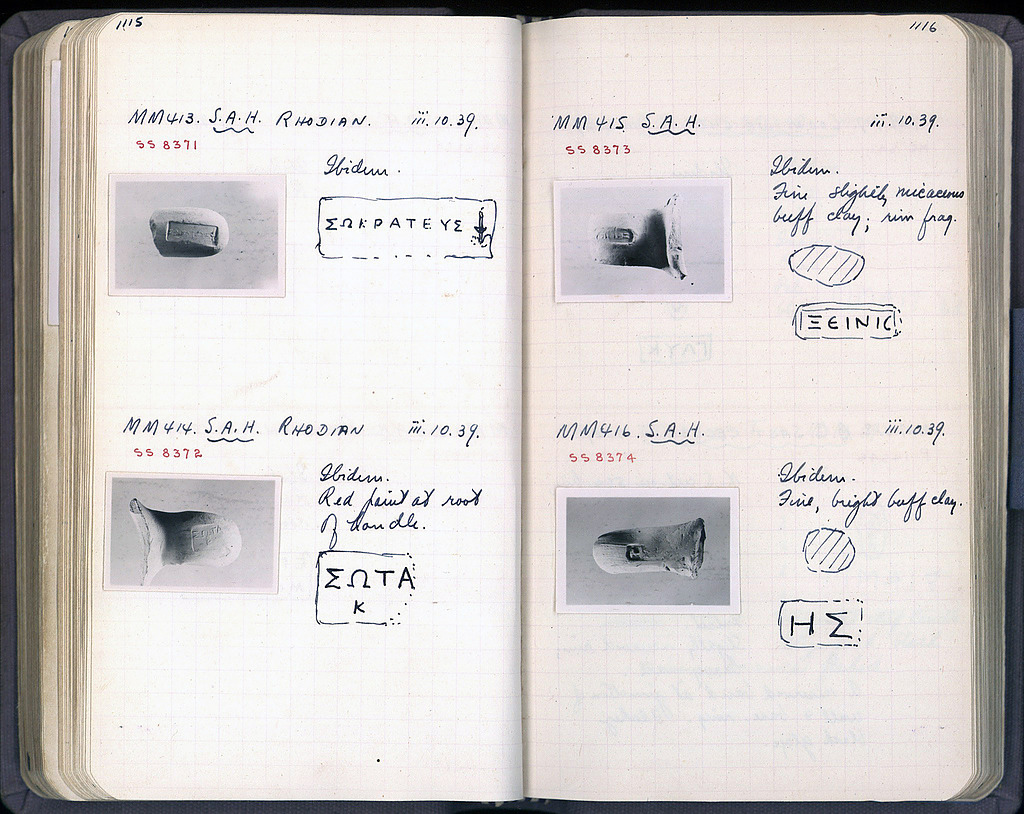 1115
MM413. S.A.H. RHODIAN. iii.10.39.
SS 8371
Ibidem.
ΣΩΚΡΑΤΕΥΣ
MM414. S.A.H. RHODIAN iii.10.39.
SS 8372
Ibidem.
Red paint at root
of handle.
ΣΩΤΑ
Κ
1116
MM415 S.A.H. iii.10.39.
SS 8373
Ibidem.
Fine slightly micaceous
buff clay; rim frag.
ΞΕΙΝΙΣ
MM416. S.A.H. iii.10.39.
SS 8374
Ibidem.
Fine, bright buff clay.
ΗΣ